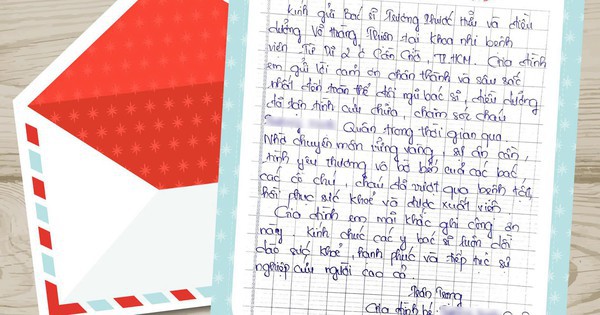 Kính gửi bác sĩ Trương Phước Hữu và điều
dưỡng Võ Hoàng Thiên tại khoa nhi bệnh
viện Từ Dũ 2 ở Cần Giờ, TP.HCM. Gia đình
em gửi lời cảm ơn chân thành và sâu sắc
nhất đến toàn thể đội ngũ bác sĩ, điều dưỡng
đã tận tình cứu chữa, chăm sóc cháu
Quân trong thời gian qua
Nhờ chuyên môn vững vàng, sự ân cần,
tình yêu thương vô bờ bến của các bác
các cô chú, cháu đã vượt qua bệnh tật,
hồi phục sức khoẻ và được xuất viện
Gia đình em mãi khắc ghi công ơn
này. Kính chúc các y bác sĩ luôn dồi
dào sức khoẻ, hạnh phúc và tiếp tục sự
nghiệp cứu người cao cả.
Trân Trọng
Gia đình bé